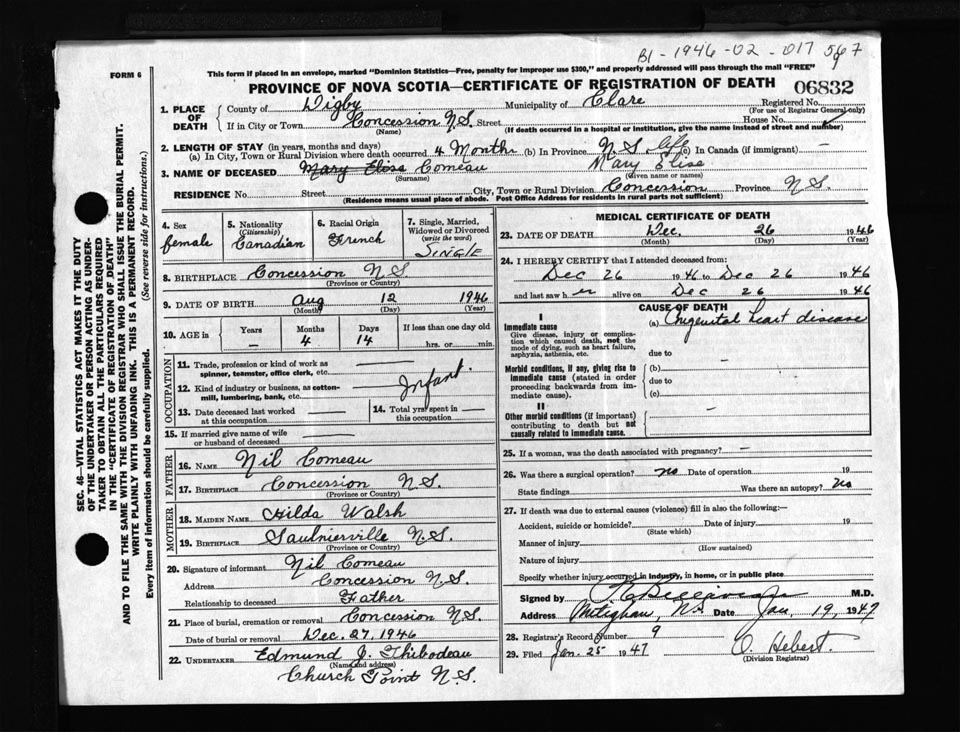 B1-1946-02-017567
9
This form if placed in an envelope, marked "Dominion Statistics—Free, penalty for improper use $300," and properly addressed will pass through the mail "FREE"
FORM 6
PROVINCE OF NOVA SCOTIA—CERTIFICATE OF REGISTRATION OF DEATH
06832
1. PLACE OF DEATH County of Digby Municipality of Clare Registered No.
(For use of Registrar General only)
If in City or Town Concession N.S. Street House No.
(Name) (If death occurred in a hospital or institution, give the name instead of street and number)
2. LENGTH OF STAY (in years, months and days)
(a) In City, Town or Rural Division where death occurred 4 Months (b) In Province N.S. life (c) In Canada (if immigrant) —
3. NAME OF DECEASED Mary Elosa Comeau Mary Elise
(Surname) (Given name or names)
RESIDENCE No. Street City, Town or Rural Division Concession Province N.S.
(Residence means usual place of abode. Post Office Address for residents in rural parts not sufficient)
4. Sex 5. Nationality (Citizenship) 6. Racial Origin 7. Single, Married, Widowed or Divorced (write the word)
female Canadian French SINGLE
8. BIRTHPLACE Concession N.S.
(Province or Country)
9. DATE OF BIRTH Aug 12 1946
(Month) (Day) (Year)
10. AGE in Years Months Days If less than one day old
— 4 14 hrs. or min.
OCCUPATION
11. Trade, profession or kind of work as spinner, teamster, office clerk, etc.
12. Kind of industry or business, as cotton-mill, lumbering, bank, etc.
Infant.
13. Date deceased last worked at this occupation
14. Total yrs spent in this occupation
15. If married give name of wife or husband of deceased
FATHER
16. NAME Nil Comeau
17. BIRTHPLACE Concession N.S.
(Province or Country)
MOTHER
18. MAIDEN NAME Hilda Walsh
19. BIRTHPLACE Saulnierville N.S.
(Province or Country)
20. Signature of informant Nil Comeau
Address Concession N.S.
Relationship to deceased Father
21. Place of burial, cremation or removal Concession N.S.
Date of burial or removal Dec. 27, 1946
22. UNDERTAKER Edmund J. Thibodeau
(Name and address)
Church Point N.S.
MEDICAL CERTIFICATE OF DEATH
23. DATE OF DEATH Dec. 26 1946
(Month) (Day) (Year)
24. I HEREBY CERTIFY that I attended deceased from:
Dec 26 1946 to Dec 26 1946
and last saw her alive on Dec 26 1946
CAUSE OF DEATH
I
Immediate cause (a) Congenital heart disease
Give disease, injury or complication which caused death, not the mode of dying, such as heart failure, asphyxia, asthenia, etc.
due to —
Morbid conditions, if any, giving rise to immediate cause (stated in order proceeding backwards from immediate cause).
(b)
due to —
(c)
II
Other morbid conditions (if important) contributing to death but not causally related to immediate cause. —
25. If a woman, was the death associated with pregnancy? —
26. Was there a surgical operation? no Date of operation 19
State findings Was there an autopsy? no
27. If death was due to external causes (violence) fill in also the following:—
Accident, suicide or homicide? Date of injury 19
(State which)
Manner of injury
(How sustained)
Nature of injury
Specify whether injury occurred in industry, in home, or in public place
Signed by M.D.
Address Meteghan, N.S. Date Jan, 19, 1947
28. Registrar's Record Number 9
29. Filed Jan. 25 1947 O. Hebert.
(Division Registrar)
SEC. 46—VITAL STATISTICS ACT MAKES IT THE DUTY
OF THE UNDERTAKER OR PERSON ACTING AS UNDER-
TAKER TO OBTAIN ALL THE PARTICULARS REQUIRED
IN THE "CERTIFICATE OF REGISTRATION OF DEATH"
AND TO FILE THE SAME WITH THE DIVISION REGISTRAR WHO SHALL ISSUE THE BURIAL PERMIT.
WRITE PLAINLY WITH UNFADING INK. THIS IS A PERMANENT RECORD.
Every item of information should be carefully supplied. (See reverse side for instructions.)